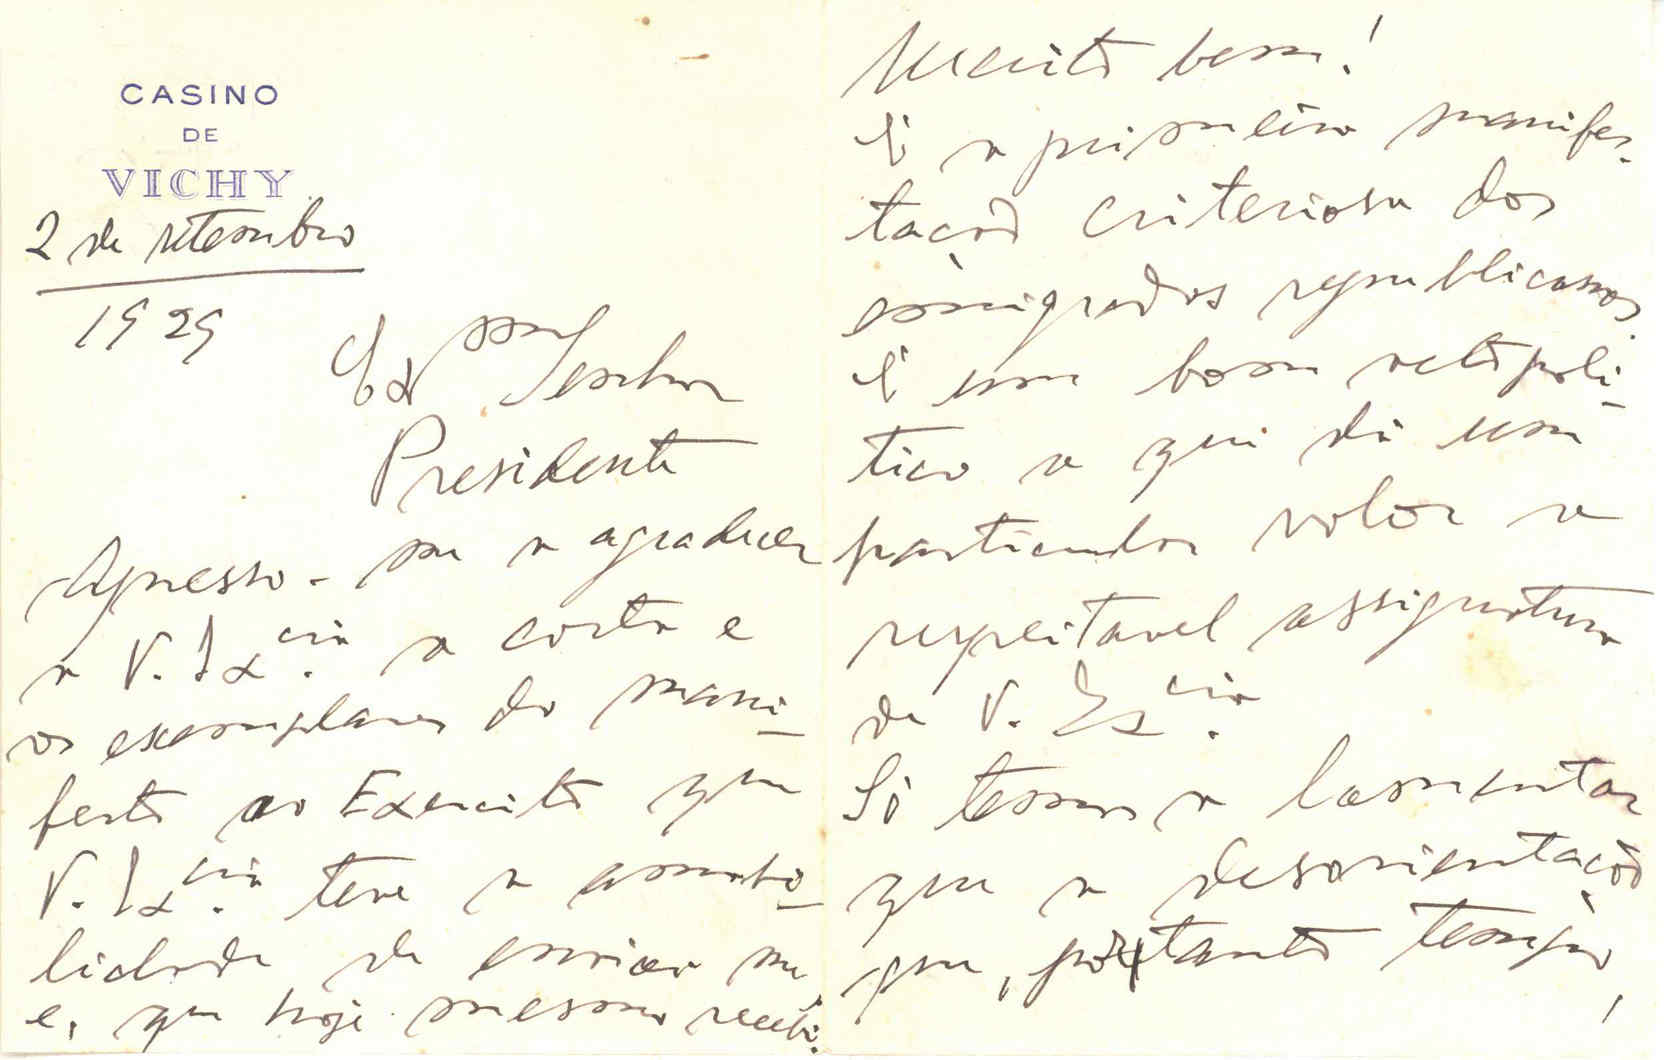 CASINO
DE
VICHY
2 de setembro
1929
Ex mo Senhor
Presidente
Apresso-me a agradecer
a V. Ex cia. a carta e
os exemplares do mani-
festo ao Exercito que
V. Ex cia. teve a amabi-
lidade de enviar-me
e, que hoje mesmo recebi.
Muito bem!
É a primeira manifes-
tação criteriosa dos
emigrados republicanos.
É um bom acto poli-
tico a que dá um
particular valor a
respeitavel assignatura
de V. Ex cia.
Só temos a lamentar
que a desorientação
que, por tanto tempo,